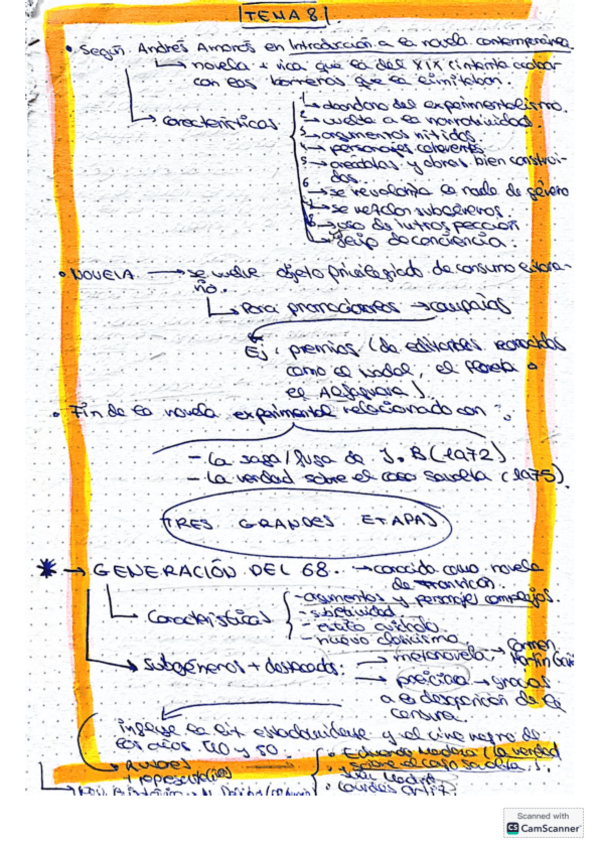 TEMA 8
• Según Andrés Amorós en Introducción a la novela contemporánea.
↳ novela + rica que la del XIX (intenta acabar
con las barreras que la limitaban.
↳ Características
1 → abandono del experimentalismo.
2 → vuelta a la narratividad.
3 → argumentos nítidos.
4 → personajes coherentes
5 → creíbles y obras bien construi-
dos.
6 → se revaloriza la novela de género
7 → se mezclan subgéneros.
8 → uso de introspección
↳ flujo de conciencia.
• NOVELA → se vuelve objeto privilegiado de consumo
↳ Para promociones → campañas
Ej: premios (de editoriales reconocidas
como el Nadal, el Planeta o
el Alfaguara).
• Fin de la novela experimental relacionado con:
- La saga/fuga de J.B (1972)
- La verdad sobre el caso Savolta (1975).
TRES GRANDES ETAPAS
* → GENERACIÓN DEL 68. → conocido como novela
de transición.
↳ Características
- argumentos y personajes complejos.
- subjetividad
- estilo cuidado.
- nuevo clasicismo.
↳ Subgéneros + destacados:
→ metanovela → Carmen
Martín Gaite
→ policíaca → gracias
a la desaparición de la
censura.
influye la lit estadounidense y el cine negro de
los años 40 y 50.
↳ Autores
+ representativos
• Eduardo Mendoza (La verdad
sobre el caso Savolta).
• Juan Madrid
• Lourdes Ortiz.
Scanned with
CS CamScanner